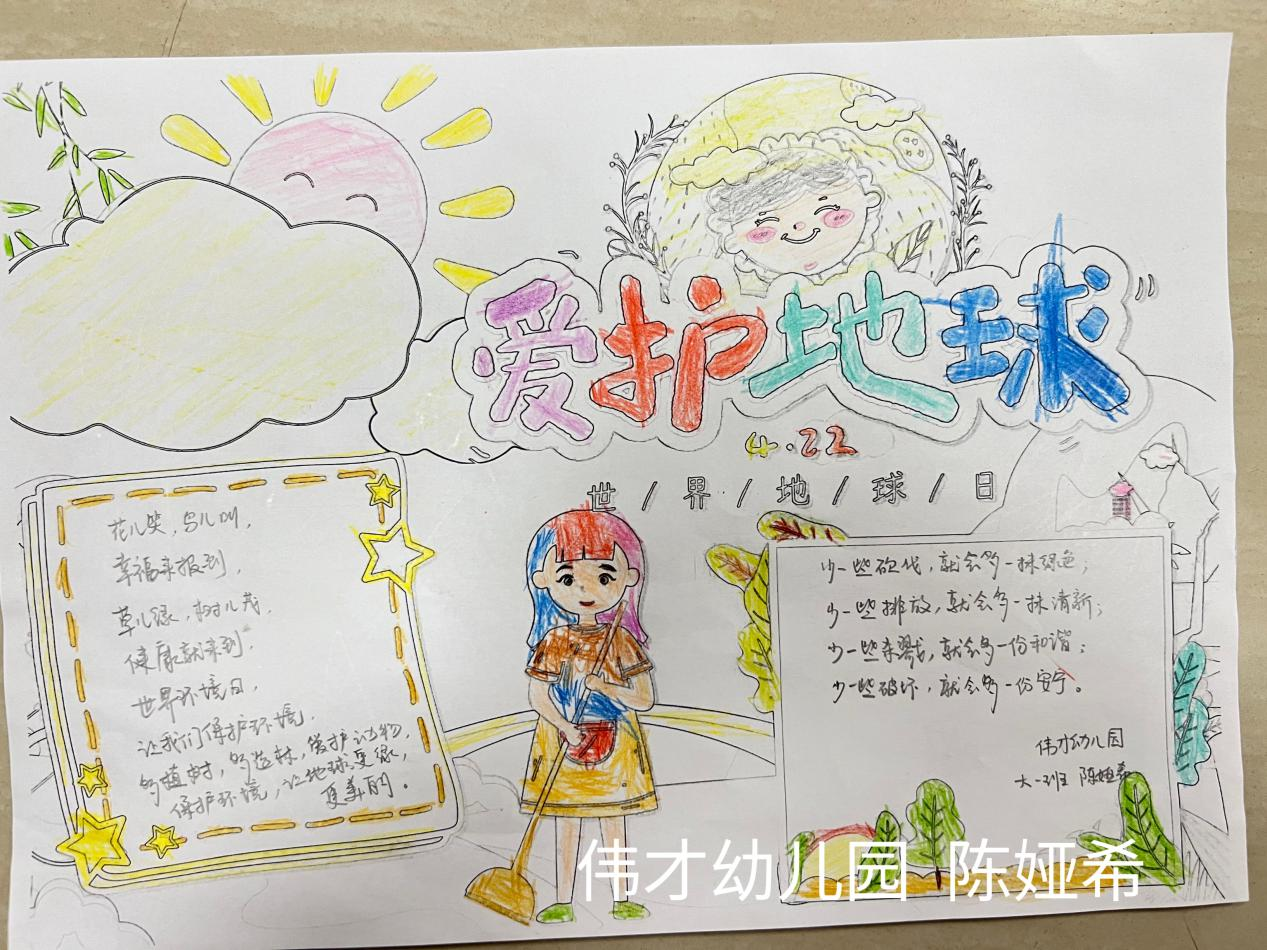 爱护地球
4.22
世/界/地/球/日
花儿笑,鸟儿叫,
幸福来报到,
草儿绿,树儿茂,
健康就来到.
世界环境日,
让我们保护环境,
多植树,多造林,保护动物,
保护环境,让地球变绿,
变美的。
少一些砍伐,就会多一抹绿色;
少一些排放,就会多一抹清新;
少一些杀戮,就会多一份和谐;
少一些破坏,就会多一份安宁。
伟才幼儿园
大一班 陈娅希
伟才幼儿园 陈娅希